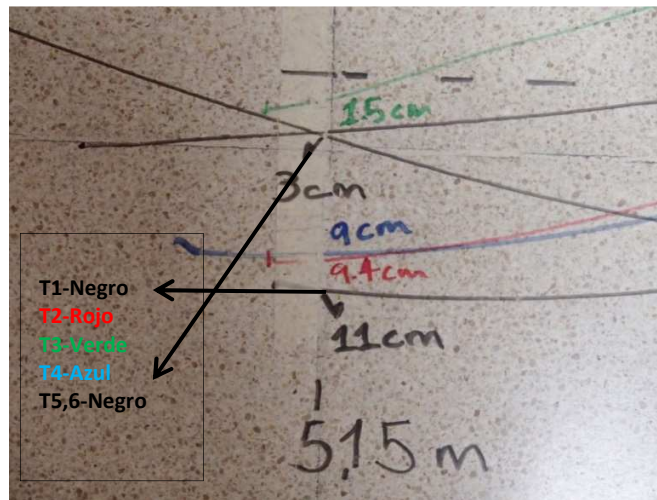 1.5cm
3cm
9cm
9.4cm
11cm
5,15 m
T1-Negro
T2-Rojo
T3-Verde
T4-Azul
T5,6-Negro